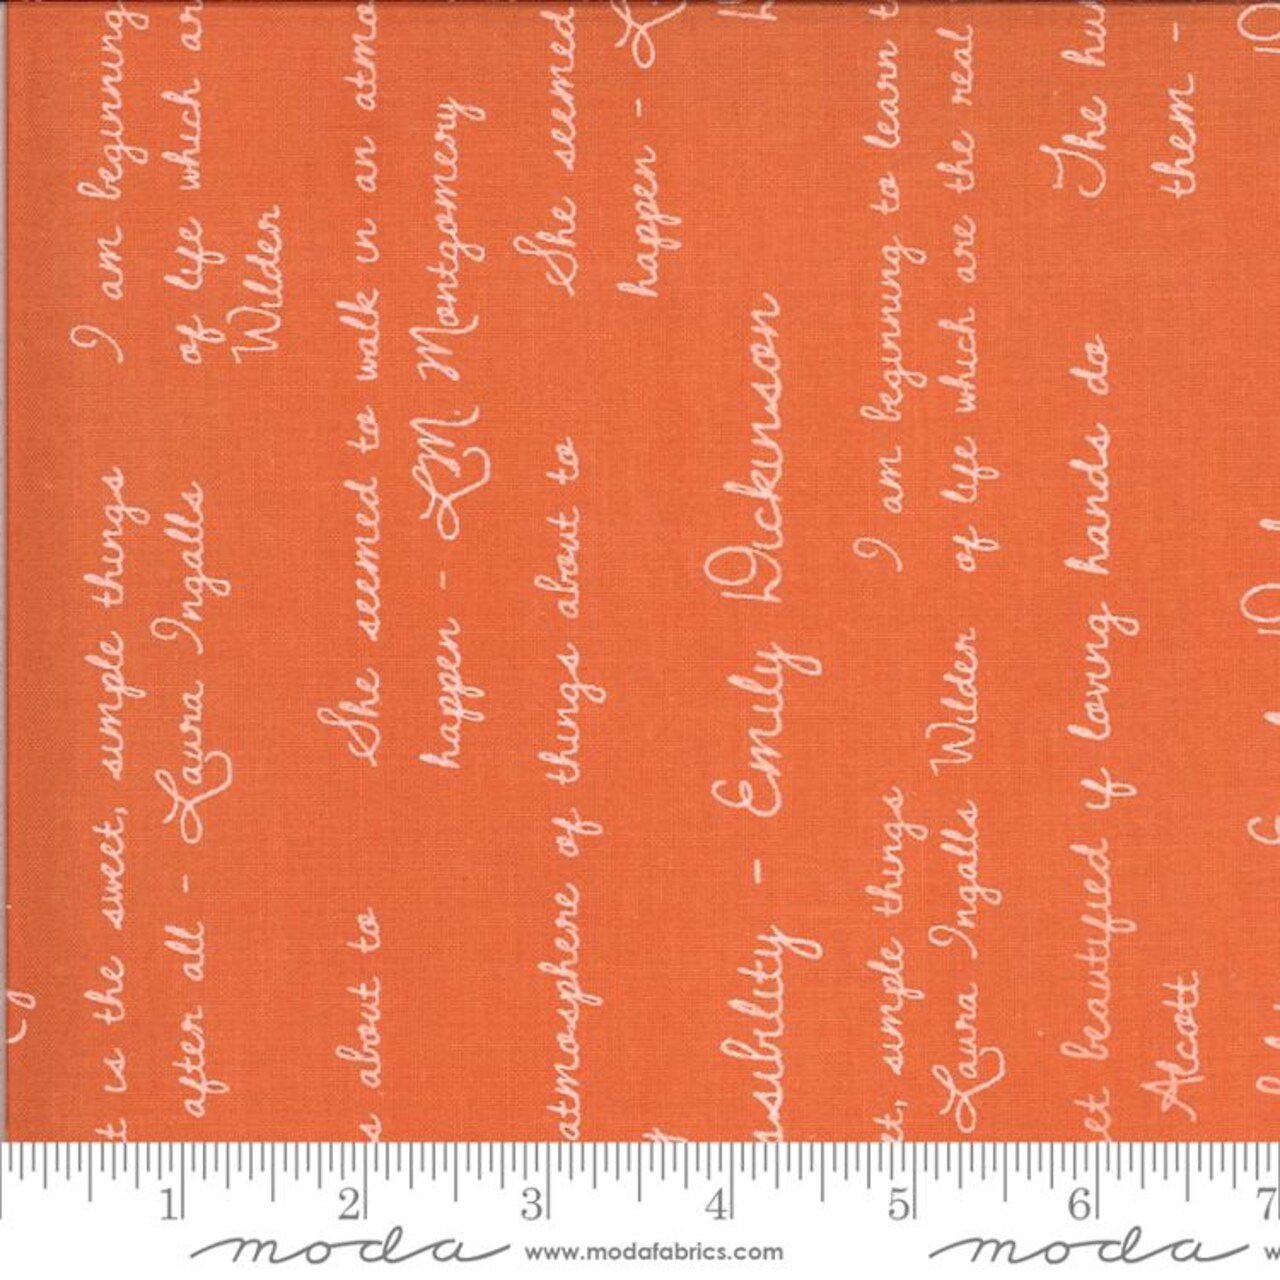 is the sweet, simple things I am beginning
after all - Laura Ingalls of life which
Wilder
about to She seemed to walk in an
happen - L.M. Montgomery
atmosphere of things about to She seemed
happen -
- Emily Dickinson
simple things I am beginning to learn
Laura Ingalls Wilder of life which are the real
beautified if loving hands do The
Alcott them -
1 2 3 4 5 6 7
moda www.modafabrics.com moda